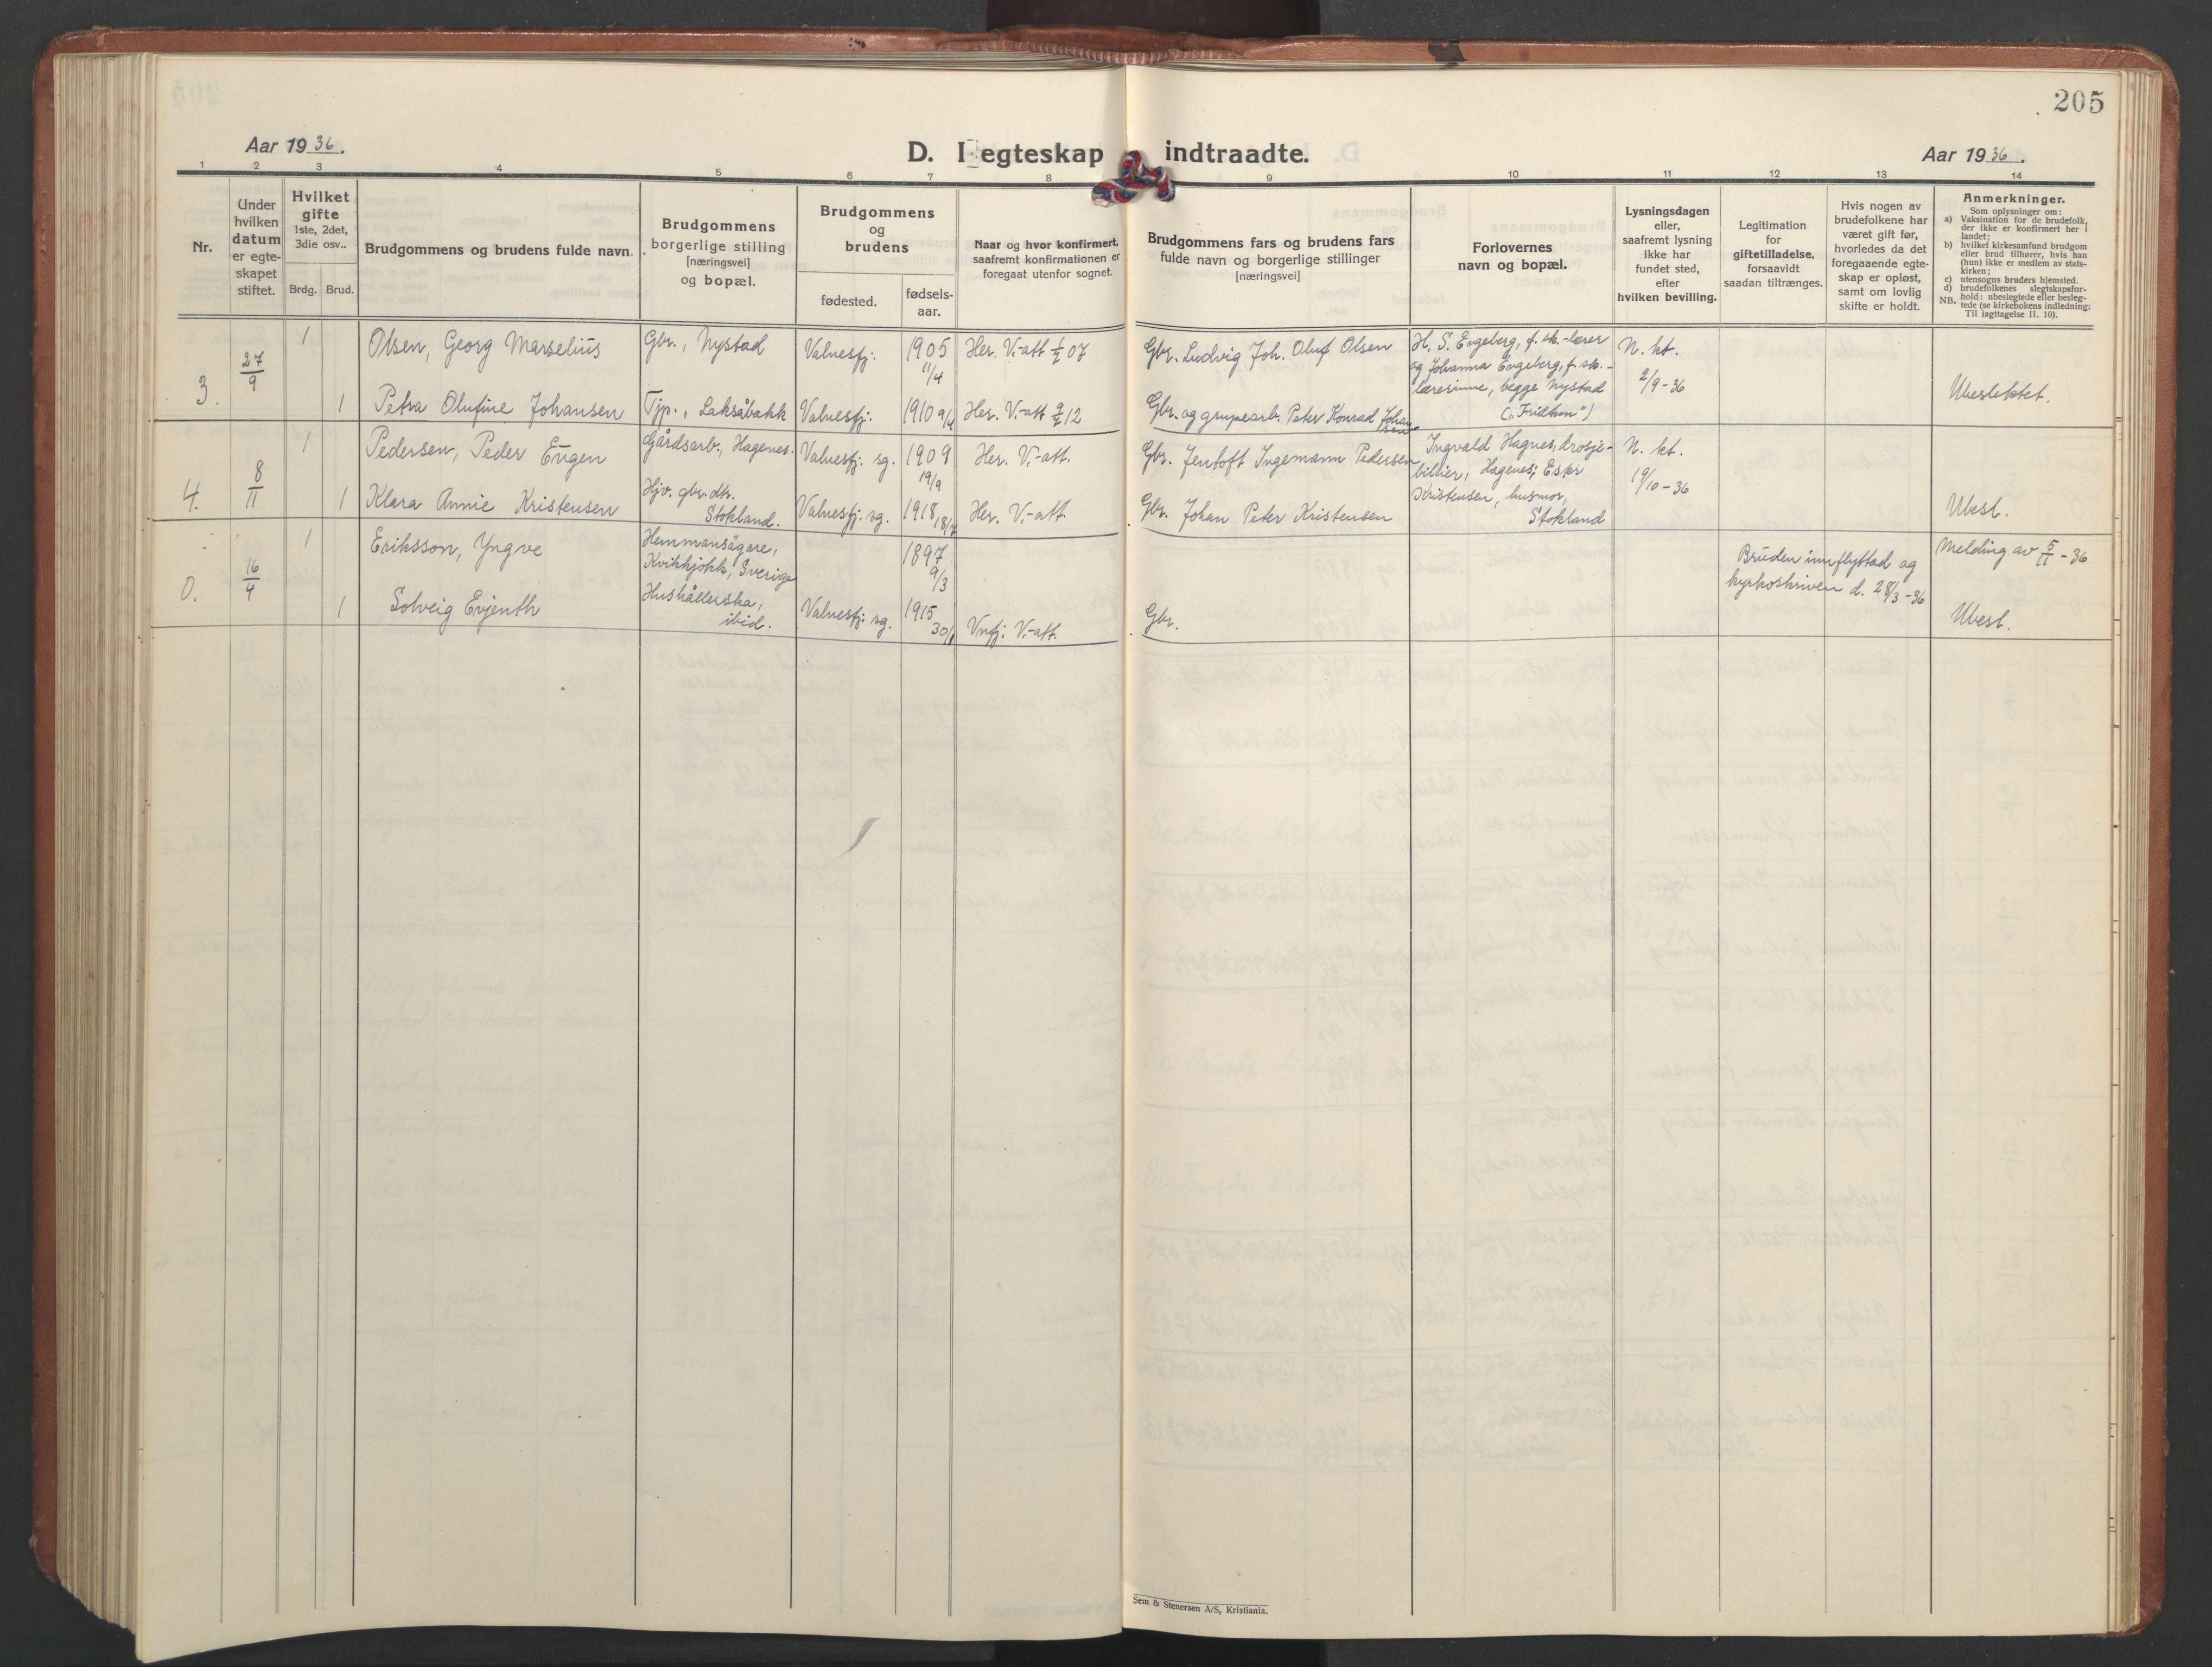 205
Aar 1936.
D. I egteskap indtraadte.
Aar 1936.
1 2 3 4 5 6 7 8 9 10 11 12 13 14
Nr.
Under
hvilken
datum
er egte-
skapet
stiftet.
Hvilket
gifte
1ste, 2det,
3die osv..
Brdg. Brud.
Brudgommens og brudens fulde navn.
Brudgommens
borgerlige stilling
[næringsvei]
og bopæl.
Brudgommens
og
brudens
fødested.
fødsels-
aar.
Naar og hvor konfirmert,
saafremt konfirmationen er
foregaat utenfor sognet.
Brudgommens fars og brudens fars
fulde navn og borgerlige stillinger
[næringsvei]
Forlovernes
navn og bopæl.
Lysningsdagen
eller,
saafremt lysning
ikke har
fundet sted,
efter
hvilken bevilling.
Legitimation
for
giftetilladelse,
forsaavidt
saadan tiltrænges.
Hvis nogen av
brudefolkene har
været gift før,
hvorledes da det
foregaaende egte-
skap er opløst,
samt om lovlig
skifte er holdt.
Anmerkninger.
Som oplysninger om:
a) Vaksination for de brudefolk,
der ikke er konfirmert her i
landet;
b) hvilket kirkesamfund brudgom
eller brud tilhører, hvis han
(hun) ikke er medlem av stats-
kirken;
c) utensogns bruders hjemsted.
d) brudefolkenes slegtskapsfor-
hold: ubeslegtede eller besleg-
tede (se kirkebokens indledning:
NB. Til iagttagelse II. 10).
3.
27/9
1
Olsen, Georg Marselius
Gbr., Nystad
Valnesfj.
1905
11/4
Her. V.-att 1/2 07
Gbr. Ludvig Joh. Oluf Olsen
H. S. Engeberg, f. sk.-lærer
og Johanna Engeberg, f. sk.-
lærerinne, begge Nystad
("Fridhem")
N. kt.
2/9-36
1
Petra Olufine Johansen
Tjp., Laksåbakk
Valnesfj.
1910 9/4
Her. V.-att 9/2 12
Gbr. og grupearb. Peter Konrad Johan-
sen
Ubeslektet.
4.
8/11
1
Pedersen, Peder Eugen
Gårdsarb., Hagenes.
Valnesfj. sg.
1909
19/9
Her. V.-att.
Gbr. Jentoft Ingemann Pedersen
Ingvald Hagnes, drosje-
bileier, Hagenes; Ester
Kristensen, husmor,
Stokland
N. kt.
19/10-36
1
Klara Annie Kristensen
Hjv. gbr. dtr.
Stokland.
Valnesfj. sg.
1918 18/7
Her. V.-att.
Gbr. Johan Peter Kristensen
Ubesl.
0.
16/4
1
Eriksson, Yngve
Hemmansägare,
Kvikkjokk, Sverige
1897
9/3
Bruden innflyttad og
kyrkoskriven d. 28/3-36
Melding av 5/11-36
1
Solveig Evjenth
Hushållerska,
ibid.
Valnesfj. sg.
1915
30/1
Vnfj. V.-att.
Gbr.
Ubesl.
Sem & Stenersen A/S, Kristiania.